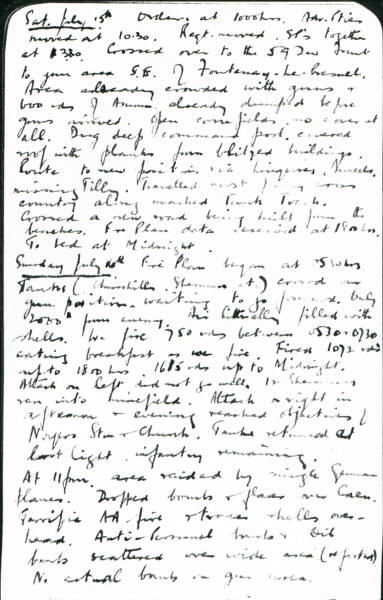 Sat. July 15th Orders at 1000 hrs. Adv. Pties
moved at 10.30. Regt. moved S.P's together
at 1330. Crossed over to the 59 Div front
to gun area S.E. of Fontenay-le-Pesnel.
Area already crowded with guns &
600 rds of Ammn. already dumped before
guns arrived. Open cornfields, no cover at
all. Dug deep command post, covered
roof with planks from blitzed buildings.
Route to new position via Lingevres,
missing Tilly. Travelled most of way cross
country along marked Tank Track.
Crossed a new road being built from the
beaches. Fire Plan data received at 1800 hrs.
To bed at Midnight.
Sunday July 16th Fire Plan began at 0530 hrs
Tanks (Churchills, Shermans etc.) crowd on
gun position waiting to go forward. Only
2000x from enemy. Air literally filled with
shells. We fire 750 rds between 0530 & 0730
eating breakfast as we fire. Fired 1092 rds
up to 1800 hrs. 1615 rds up to Midnight.
Attack on left did not go well. Shermans
ran into minefield. Attack on right in
afternoon & evening reached objectives of
Noyers Stn & Church. Tanks returned at
last light, infantry remaining.
At 11 pm. area raided by single German
planes. Dropped bombs & flares over Caen.
Terrific AA fire & tracer shells over-
head. Anti-Personnel bombs & Oil
bombs scattered over wide area (reported)
No actual bombs in gun area.